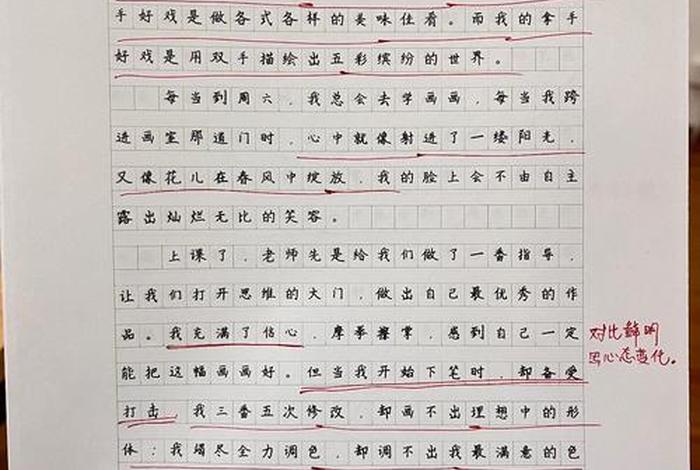 手好戏是做各式各样的美味佳肴。而我的拿手
好戏是用双手描绘出五彩缤纷的世界。
每当到周六，我总会去学画画，每当我跨
进画室那道门时，心中就像射进了一缕阳光，
又像花儿在春风中绽放，我的脸上会不由自主
露出灿烂无比的笑容。
上课了，老师先是给我们做了一番指导，
让我们打开思维的大门，做出自己最优秀的作
品。我充满了信心，摩拳擦掌，感到自己一定
对比鲜明
能把这幅画画好。但当我开始下笔时，却备受
心态变化。
打击，我三番五次修改，却画不出理想中的形
体；我竭尽全力调色，却调不出我最满意的色